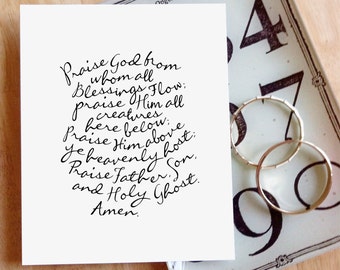 Praise God from
whom all
Blessings Flow;
praise Him all
creatures
here below;
Praise Him above
ye heavenly host;
Praise Father, Son,
and Holy Ghost.
Amen.
54
7
9